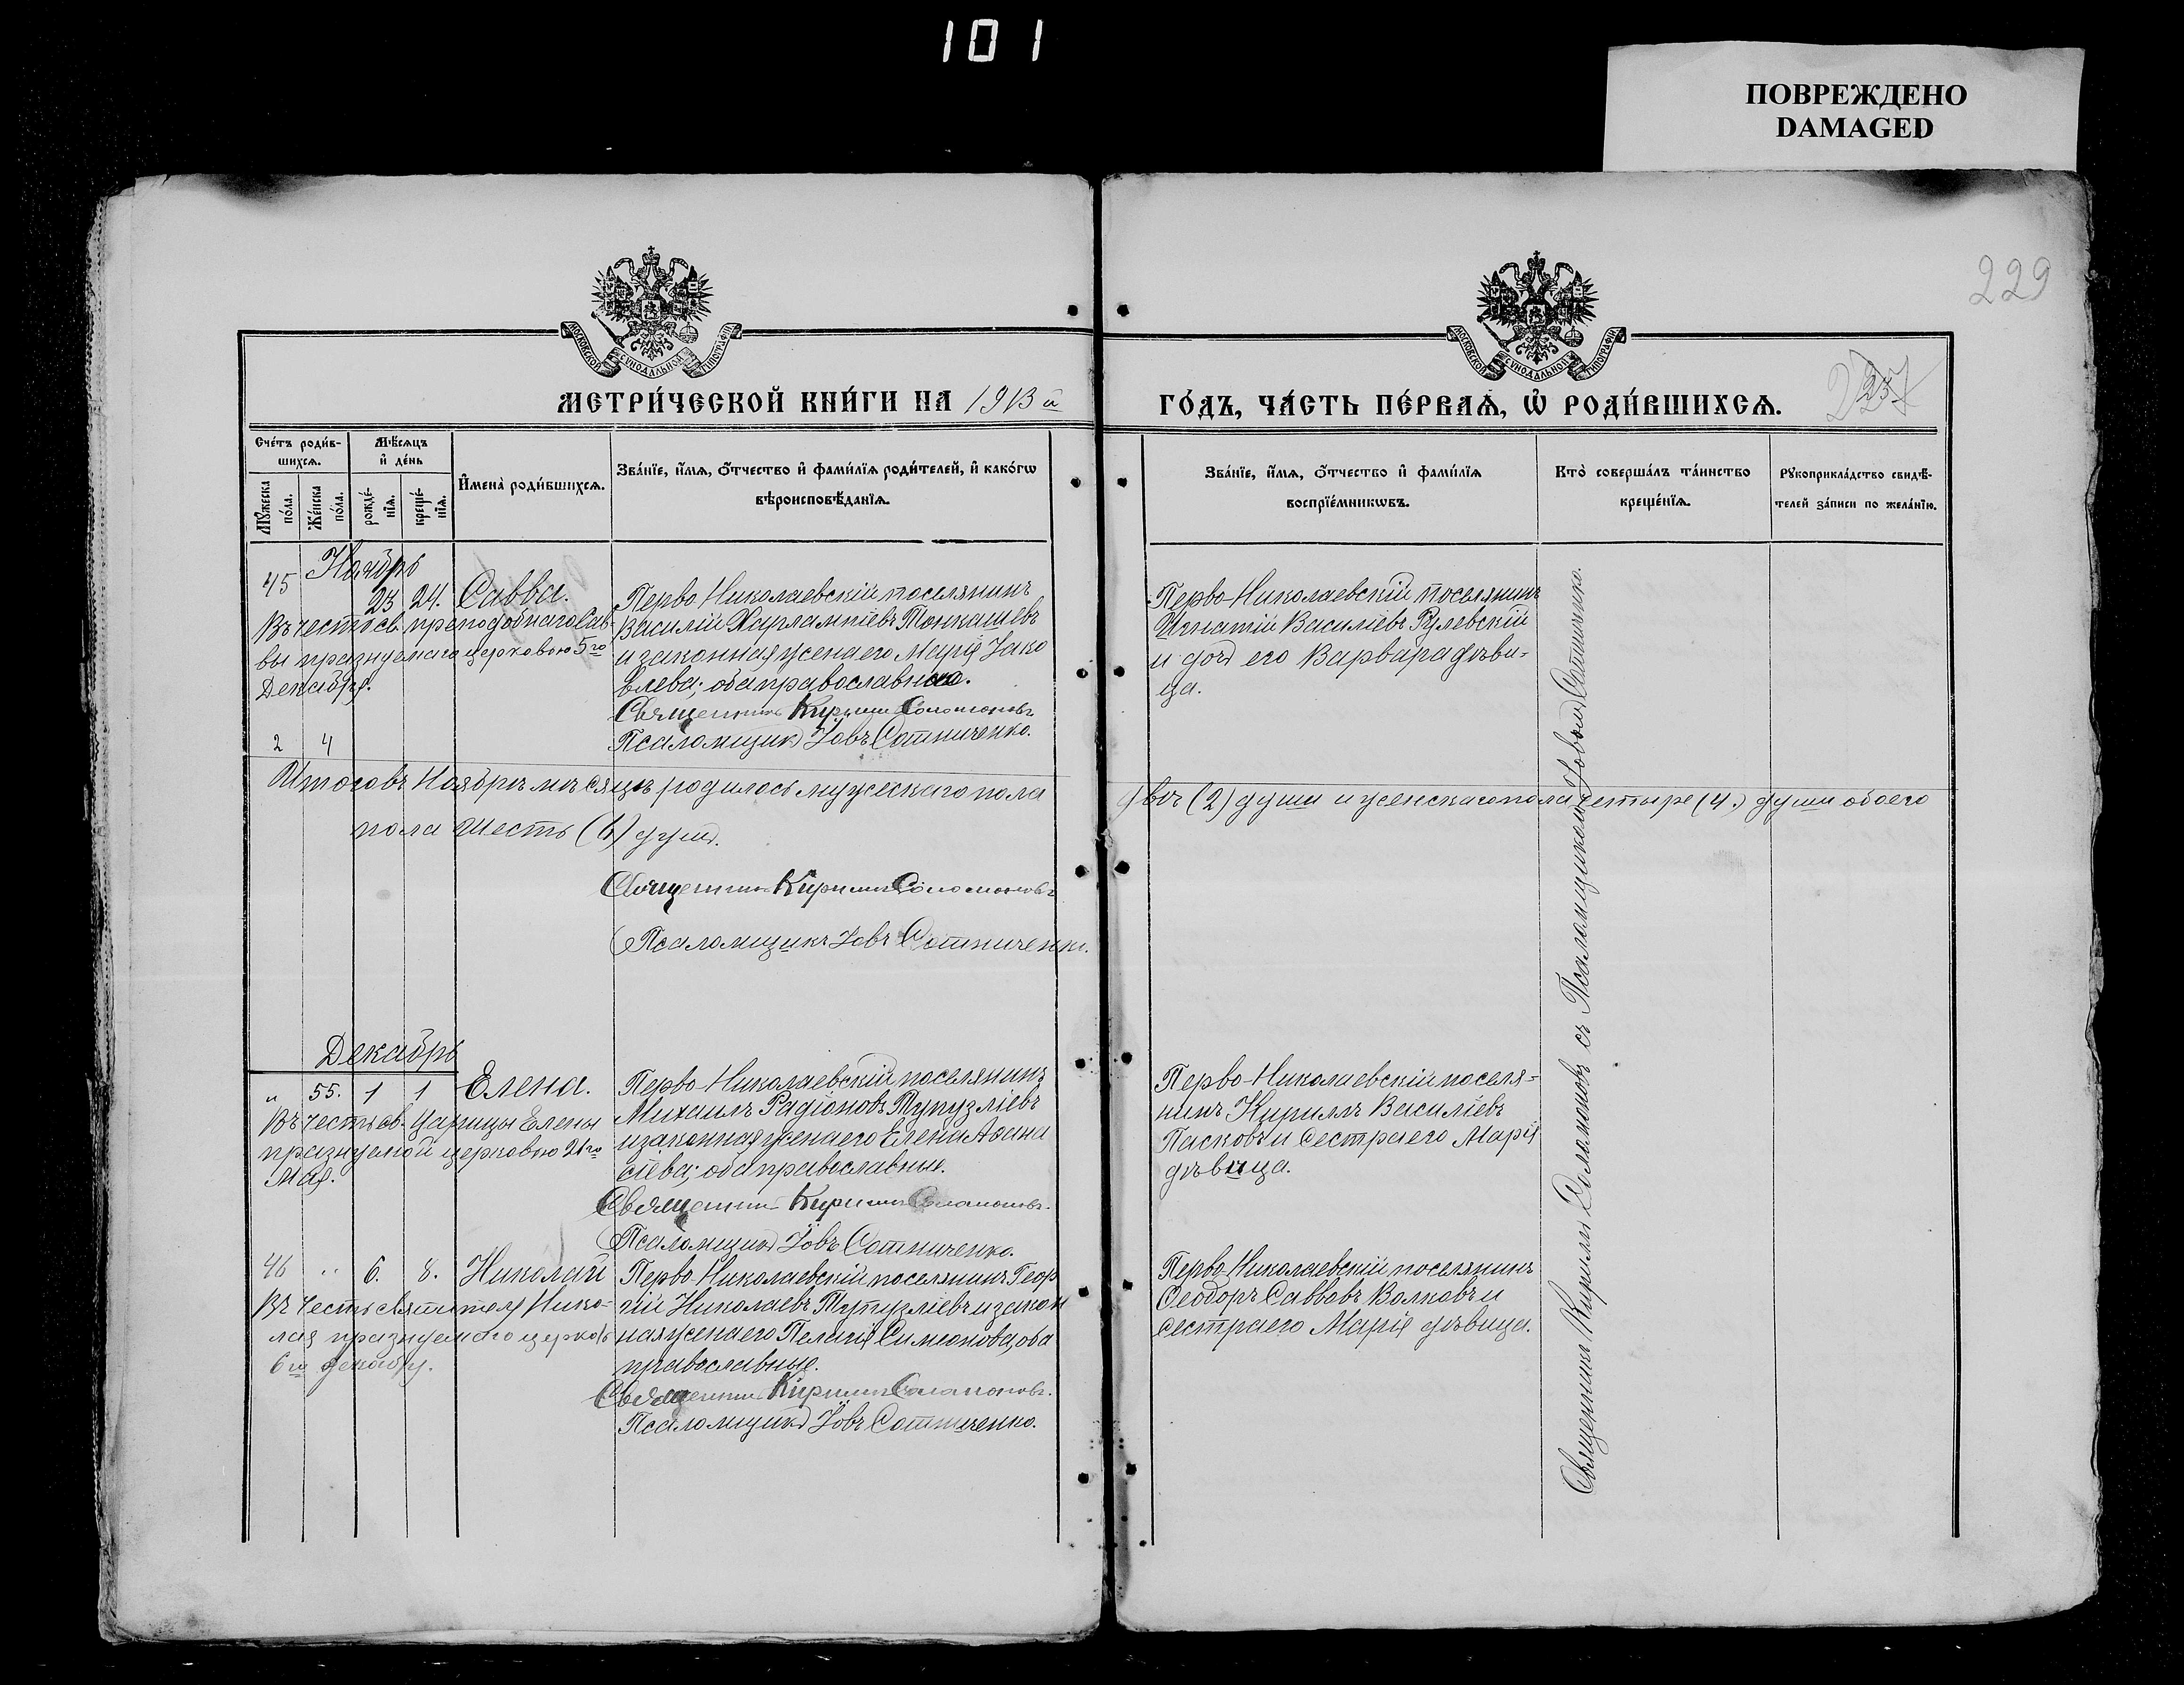 101
ПОВРЕЖДЕНО
DAMAGED
229
МОСКОВСКОЙ СѴНОДАЛЬНОЙ ТИПОГРАФІИ
МОСКОВСКОЙ СѴНОДАЛЬНОЙ ТИПОГРАФІИ
МЕТРИ́ЧЕСКОЙ КНИ́ГИ НА 1913 й
ГО́ДЪ, ЧА́СТЬ ПЕ́РВАѦ, Ѡ҆ РОДИ́ВШИХСѦ.
Сче́тъ роди́в-
шихсѧ.
Мѣ́сѧцъ
и҆ де́нь
Мꙋ́жеска по́ла.
Же́нска по́ла.
рожде́-нїѧ.
креще́-нїѧ.
И҆мена̀ роди́вшихсѧ.
Зва́нїе, и҆́мѧ, ѻ҆́тчество и҆ фами́лїѧ роди́телей, и҆ како́гѡ
вѣроисповѣ́данїѧ.
Зва́нїе, и҆́мѧ, ѻ҆́тчество и҆ фами́лїѧ
воспрїе́мникѡвъ.
Кто̀ соверша́лъ та́инство
креще́нїѧ.
Рꙋкоприкла́дство свидѣ́-
телей за́писи по жела́нїю.
Ноябрь
45 23 24. Савва.
Въ честь св. преподобнаго Сав-
вы празнуемаго церковью 5го
Декабря.
Перво-Николаевскій поселянинъ
Василій Харлампіевъ Тонкашевъ
и законная жена его Марія Іако
влева; оба православные.
Священникъ Кириллъ Соломоновъ
Псаломщикъ Іовъ Сотниченко.
Перво-Николаевскій поселянинъ
Игнатій Василіевъ Рулевскій
и дочь его Варвара дѣви-
ца.
2 4
Итого въ Ноябрѣ мѣсяцѣ родилось мужескаго пола
двѣ (2) души и женскаго пола четыре (4.) души обоего
пола шесть (6) душъ.
Священникъ Кириллъ Соломоновъ
Псаломщикъ Іовъ Сотниченко.
Декабрь
" 55. 1 1 Елена.
Въ честь св. Царицы Елены
празнуемой церковью 21го
Мая.
Перво-Николаевскій поселянинъ
Михаилъ Радіоновъ Тупузліевъ
и законная жена его Елена Аѳана
сіева; оба православные.
Священникъ Кириллъ Соломоновъ.
Псаломщикъ Іовъ Сотниченко.
Перво-Николаевскій поселя-
нинъ Кириллъ Василіевъ
Пасковъ и сестра его Марія
дѣвица.
46 " 6. 8. Николай
Въ честь святителя Нико-
лая празнуемаго церковь
6го декабря.
Перво-Николаевскій поселянинъ Геор
гій Николаевъ Тупузліевъ и закон
ная жена его Пелагія Симеонова, оба
православные.
Священникъ Кириллъ Соломоновъ.
Псаломщикъ Іовъ Сотниченко.
Перво-Николаевскій поселянинъ
Ѳеодоръ Саввовъ Волковъ и
сестра его Марія дѣвица.
Священникъ Кириллъ Соломоновъ съ Псаломщикомъ Іовомъ Сотниченко.